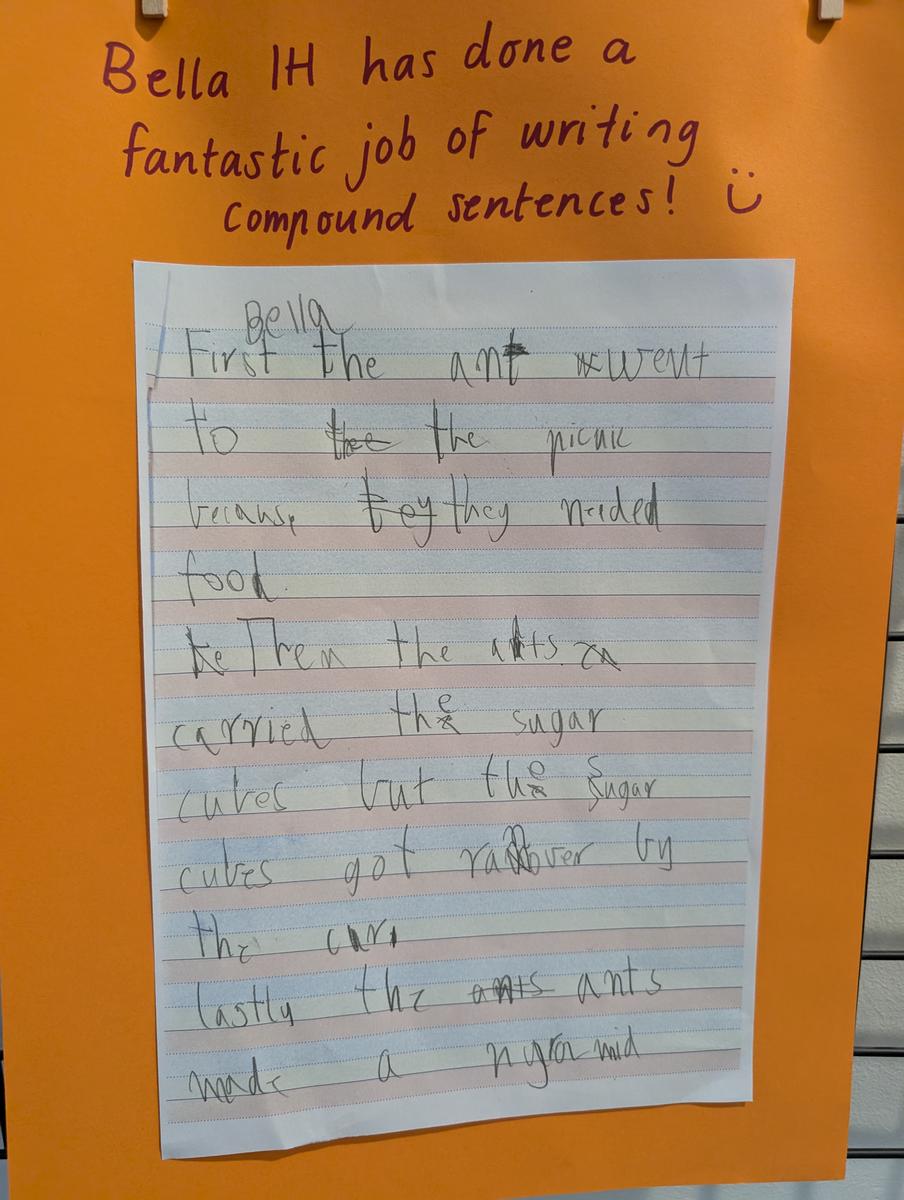 Bella 1H has done a
fantastic job of writing
compound sentences!
Bella
First the ant went
to the picnic
because they needed
food.
Then the ants
carried the sugar
cubes but the sugar
cubes got ranover by
the car.
lastly the ants
made a pyramid